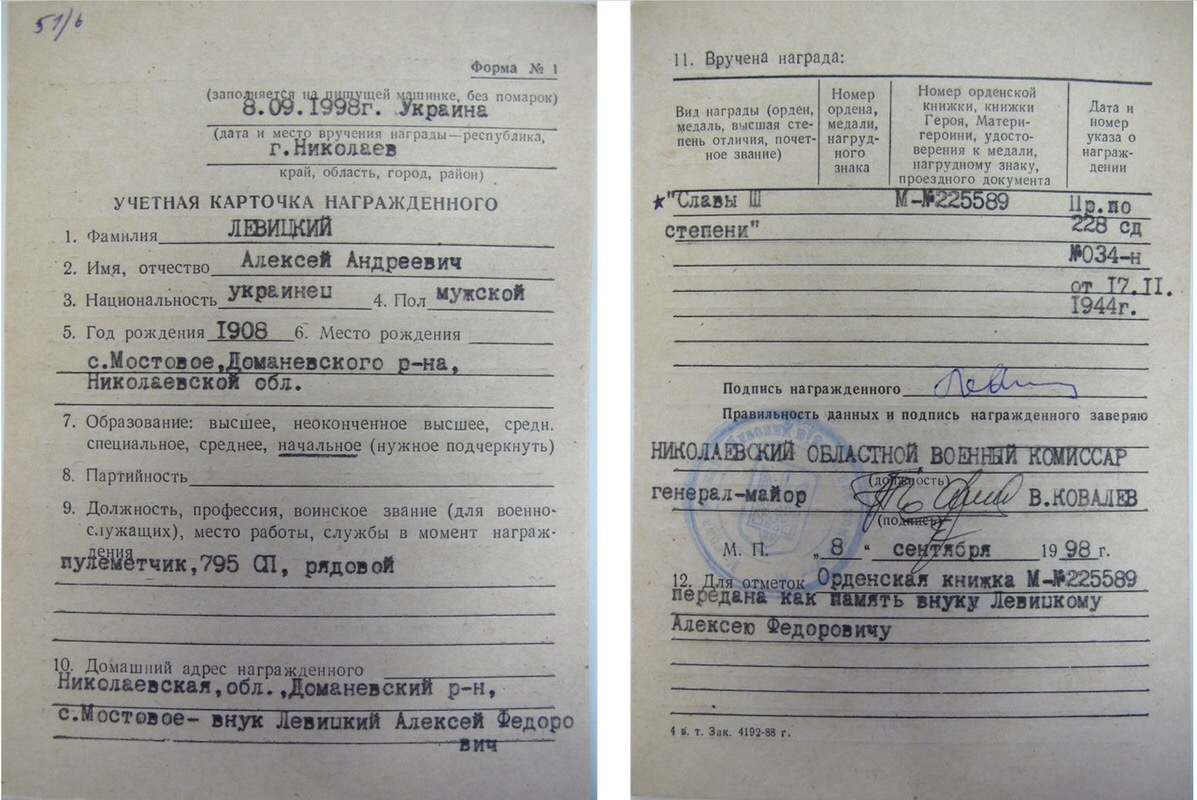 51/6
Форма № 1
(заполняется на пишущей машинке, без помарок)
8.09.1998г. Украина
(дата и место вручения награды—республика,
г.Николаев
край, область, город, район)
УЧЕТНАЯ КАРТОЧКА НАГРАЖДЕННОГО
1. Фамилия ЛЕВИЦКИЙ
2. Имя, отчество Алексей Андреевич
3. Национальность украинец 4. Пол мужской
5. Год рождения 1908 6. Место рождения
с.Мостовое,Доманевского р-на,
Николаевской обл.
7. Образование: высшее, неоконченное высшее, средн.
специальное, среднее, начальное (нужное подчеркнуть)
8. Партийность
9. Должность, профессия, воинское звание (для военно-
служащих), место работы, службы в момент награж-
дения
пулеметчик,795 СП, рядовой
10. Домашний адрес награжденного
Николаевская,обл.,Доманевский р-н,
с.Мостовое- внук Левицкий Алексей Федоро
вич
11. Вручена награда:
Вид награды (орден, медаль, высшая сте-
пень отличия, почет-
ное звание)
Номер
ордена,
медали,
нагруд-
ного
знака
Номер орденской
книжки, книжки
Героя, Матери-
героини, удосто-
верения к медали,
нагрудному знаку,
проездного документа
Дата и
номер
указа о
награж-
дении
★"Славы Ш М-№225589 Пр.по
степени" 228 сд
№034-н
от 17.II.
1944г.
Подпись награжденного
Правильность данных и подпись награжденного заверяю
НИКОЛАЕВСКИЙ ОБЛАСТНОЙ ВОЕННЫЙ КОМИССАР
(должность)
генерал-майор В.КОВАЛЕВ
(подпись)
М. П. „ 8 “ сентября 19 98 г.
12. Для отметок Орденская книжка М-№225589
передана как память внуку Левицкому
Алексею Федоровичу
4 в. т. Зак. 4192-88 г.